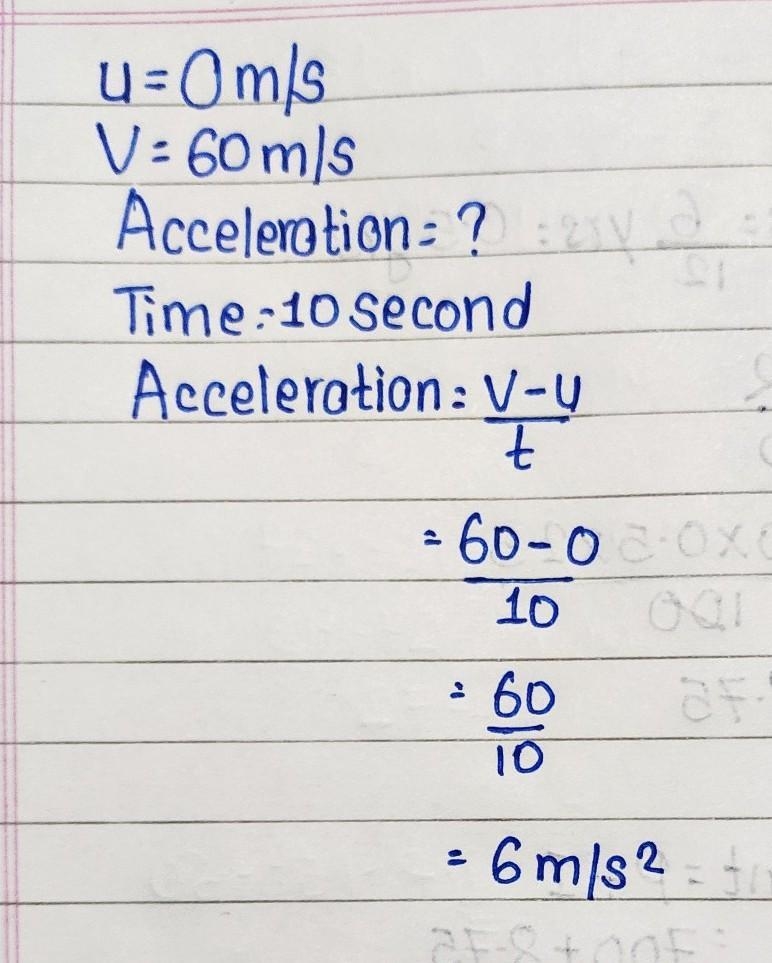 u=0m/s
V=60m/s
Acceleration=?
Time:-10 second
Acceleration=V-u
t
=60-0
10
=60
10
=6m/s²